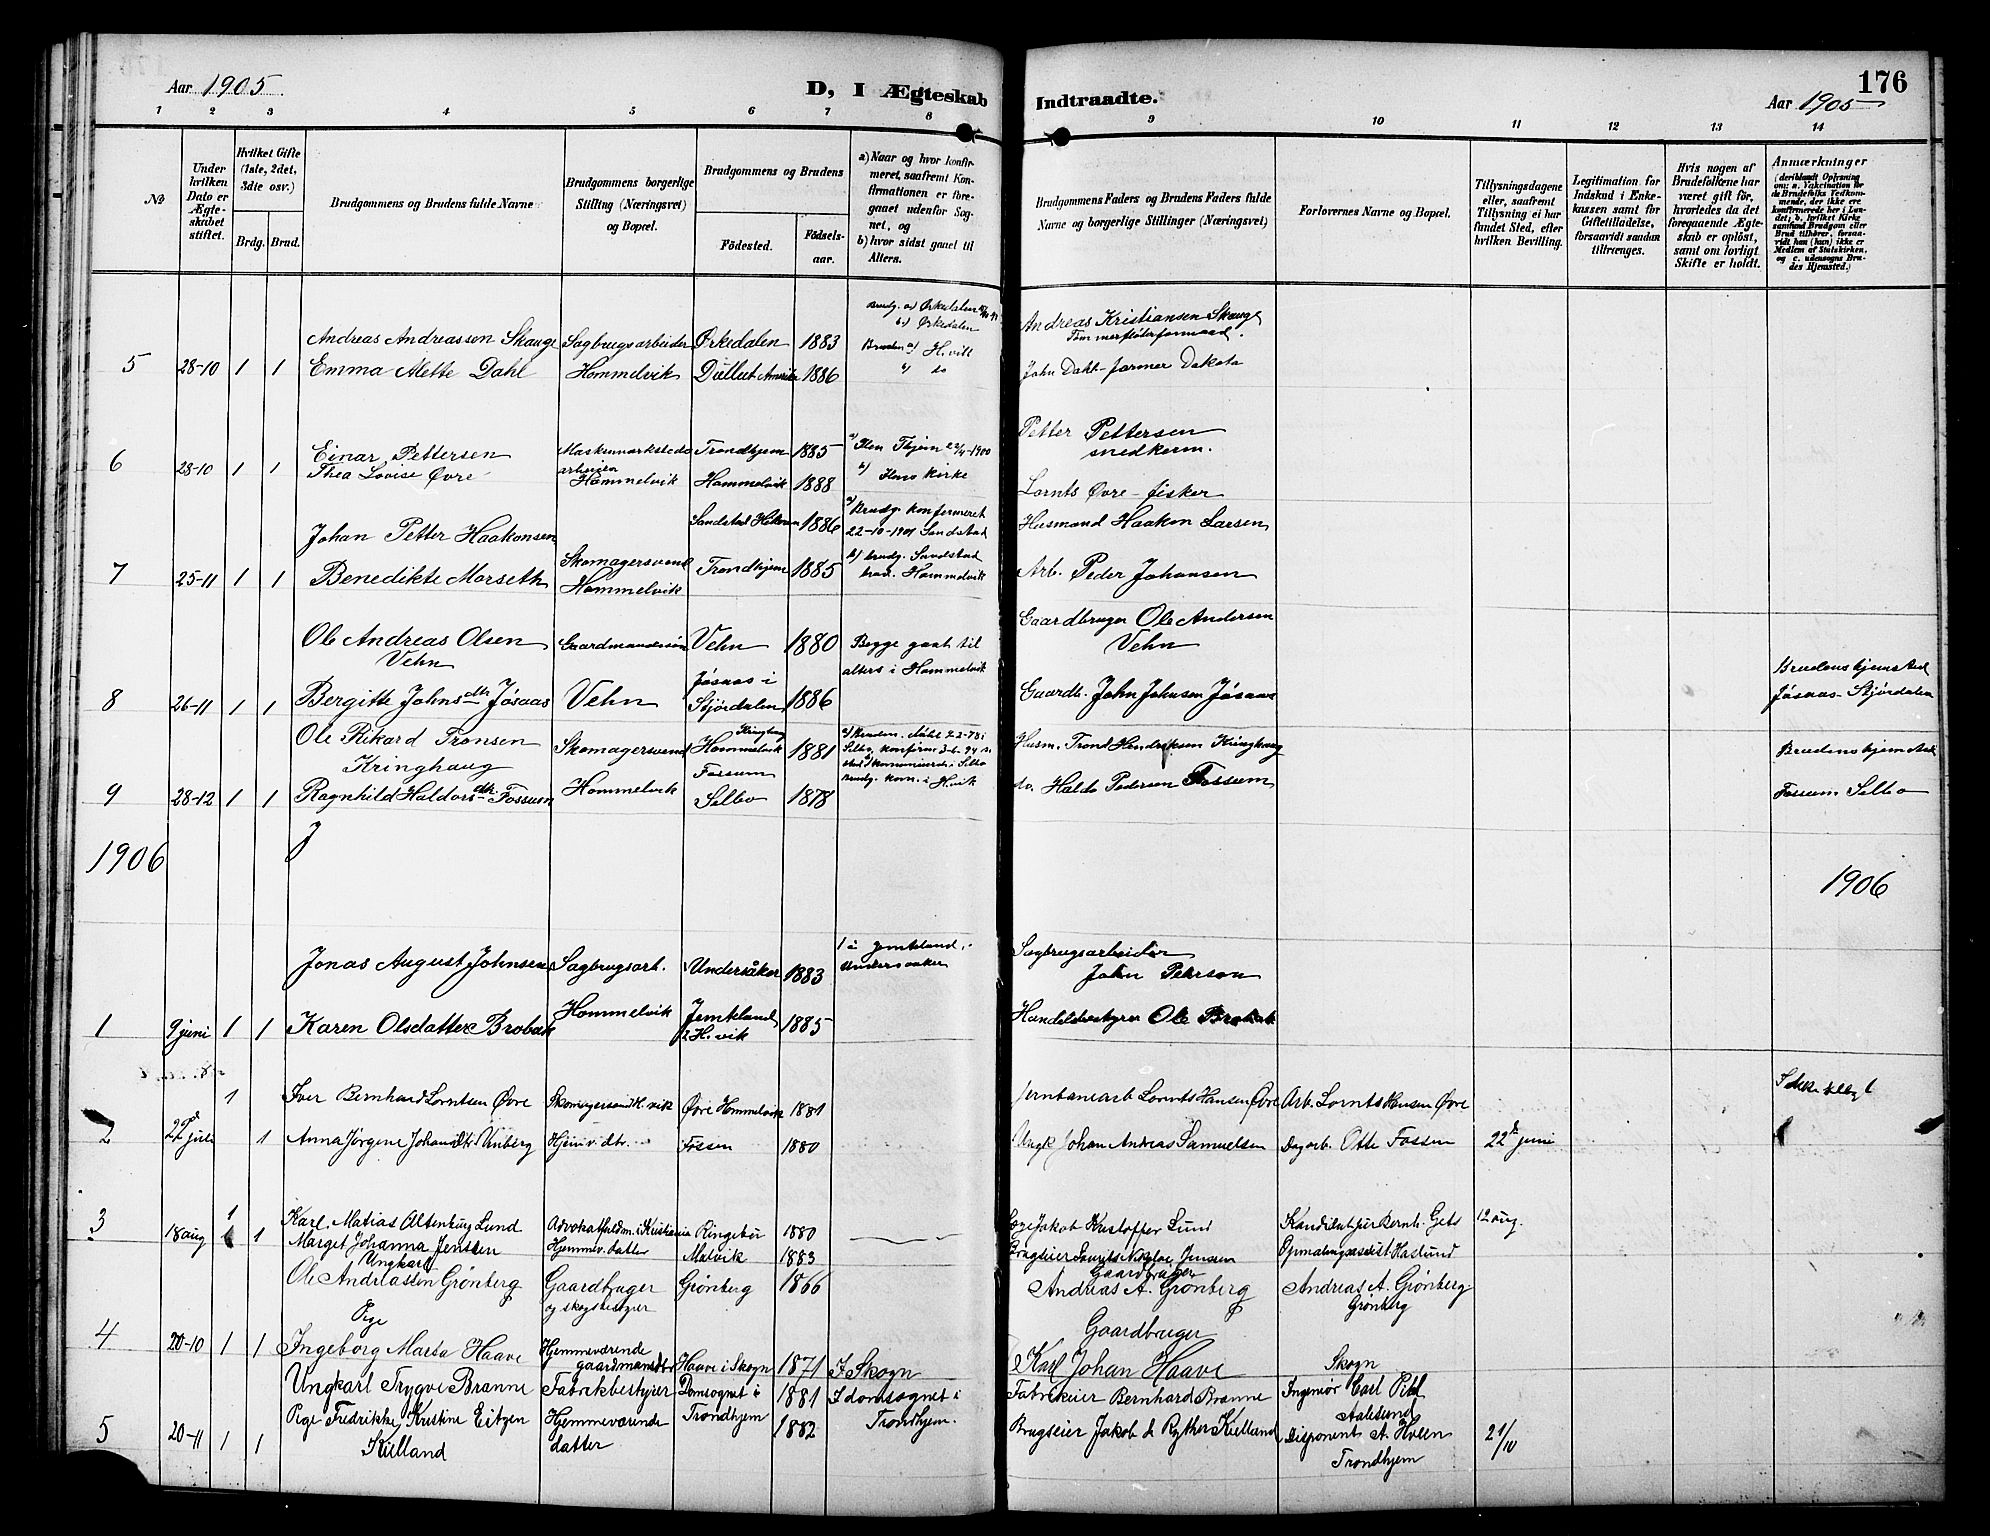 Aar 1905. D, I Ægteskab Indtraadte. 176
Aar 1905
1 2 3 4 5 6 7 8 9 10 11 12 13 14
№
Under hvilken Dato er Ægteskabet stiftet.
Hvilket Gifte (1ste, 2det, 3die osv.)
Brdg. Brud.
Brudgommens og Brudens fulde Navne
Brudgommens borgerlige Stilling (Næringsvei) og Bopæl.
Brudgommens og Brudens
Födested. Födselsaar.
a) Naar og hvor konfirmeret, saafremt Konfirmationen er foregaaet udenfor Sognet, og
b) hvor sidst gaaet til Alters.
Brudgommens Faders og Brudens Faders fulde Navne og borgerlige Stillinger (Næringsvei)
Forlovernes Navne og Bopæl.
Tillysningsdagene eller, saafremt Tillysning ei har fundet Sted, efter hvilken Bevilling.
Legitimation for Indskud i Enkekassen samt for Giftetilladelse, forsaavidt saadan tiltrænges.
Hvis nogen af Brudefolkene har været gift før, hvorledes da det foregaaende Ægteskab er oplöst, samt om lovligt Skifte er holdt.
Anmærkninger
(deriblandt Oplysning om: a. Vakcination for de Brudefolks Vedkommende, der ikke ere konfirmerede her i Landet; b. hvilket Kirkesamfund Brudgom eller Brud tilhörer, forsaavidt han (hun) ikke er Medlem af Statskirken, og c. udensogns Brudes Hjemsted.)
Andreas Andreassen Skauge Sagbrugsarbeider Ørkedalen 1883
Brudg. a) Ørkedalen
b) Ørkedalen
Andreas Kristiansen Skauge
Tømmerfløterformand.
5 28-10 1 1 Emma Mette Dahl Hommelvik Dullut Amerika 1886
Bruden a) H.vik
b) do
John Dahl - farmer Dakota
6 28-10 1 1 Einar Pettersen
Thea Lovise Øvre
Maskinverksteds
arbeider
Hommelvik
Trondhjem 1885
Hommelvik 1888
a) Ilen Thjem 22/4-1900
b) Ilens Kirke
Petter Pettersen
snedkerm.
Lornts Øvre - fisker
Johan Petter Haakonsen
Sandstad Hitteren 1886
a) Brudg. konfirmeret
22-10-1901 Sandstad
b) brudg. Sandstad
brud. Hommelvik
Husmand Haakon Larsen
7 25-11 1 1 Benedikte Morseth
Skomagersvend
Hommelvik
Trondhjem 1885
Arb. Peder Johansen
Ole Andreas Olsen
Vehn
Gaardmandssøn Vehn 1880
Begge gaat til
alters i Hommelvik
Gaardbruger Ole Andersen
Vehn
8 26-11 1 1 Bergitte Johnsdtr Jøsaas Vehn
Jøsaas i
Stjørdalen 1886
Gaardb. John Johnsen Jøsaas
Brudens hjemsted
Jøsaas - Stjørdalen
Ole Rikard Tronsen
Kringhaug
Skomagersvend
Kringhaug
Hommelvik 1881
a) Bruden døbt 2-2-78 i
Selbo, konfirm. 3-6-94
Selbo
Brudg. kom. i H.vik
Husm. Trond Hendriksen Kringhaug
9 28-12 1 1 Ragnhild Haldorsdtr Fossum Hommelvik
Fossum
Selbo 1878
do. Haldo Pedersen Fossum
Brudens hjemsted
Fossum Selbo
1906
1906
Jonas August Johnsen Sagbrugsarb. Undersåker 1883
i Jemtland,
Undersaaker
Sagbrugsarbeider
John Person
1 9 juni 1 1 Karen Olsdatter Brobak Hommelvik
Jemtland
H.vik 1885
Handelsbestyrer Ole Brobak
1 Iver Bernhard Lorntsen Øvre Skomagersvend H.vik Øvre Hommelvik 1881
Jernbanearb Lornts Hansen Øvre Arb. Lornts Hansen Øvre
2 22 juli 1 Anna Jørgine Johansdtr Unberg Hjemv. dtr. Fosen 1880
Ungk Johan Andreas Samuelsen Dagarb. Otto Fossen 22de juni
3 18 aug 1 1 Karl Matias Altenburg Lund Advokatfuldm. i Kristiania Ringebu 1880
Jakob Kristoffer Lund Kandidat jur Bernh. Getz 12 aug.
Marget Johanna Jenssen Hjemmev. datter Malvik 1883
Brugseier Lauritz Nikolai Jenssen Opmalingsassist Haslund
Ungkarl
Ole Andreassen Grönberg Gaardbruger
og skogbestyrer
Grönberg 1866
Gaardbruger
Andreas A. Grönberg Andreas A. Grönberg
Grönberg
Pige
4 20-10 1 1 Ingeborg Marta Haave
Hjemmeværende
gaardmandsdtr
Haave i Skogn 1871 I Skogn
Gaardbruger
Karl Johan Haave Skogn
Ungkarl Trygve Brænne Fabrikbestyrer Domsognet i
Trondhjem 1881
I domsognet i
Trondhjem.
Fabrikeier Bernhard Brænne Ingeniør Carl Pihl
Aalesund
5 20-11 1 1 Pige Fredrikke Kristine Eitzen
Kielland
Hjemmeværende
datter
1882
Brugseier Jakob d Rytter Kielland Disponent A. Hveen
Trondhjem
21/10